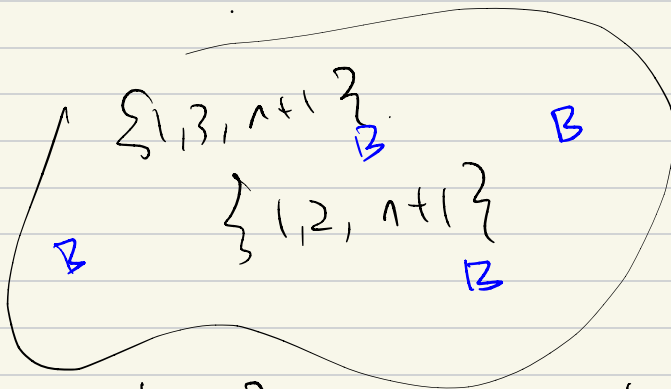 {1,3, n+1}
B
B
{1,2, n+1}
B
B